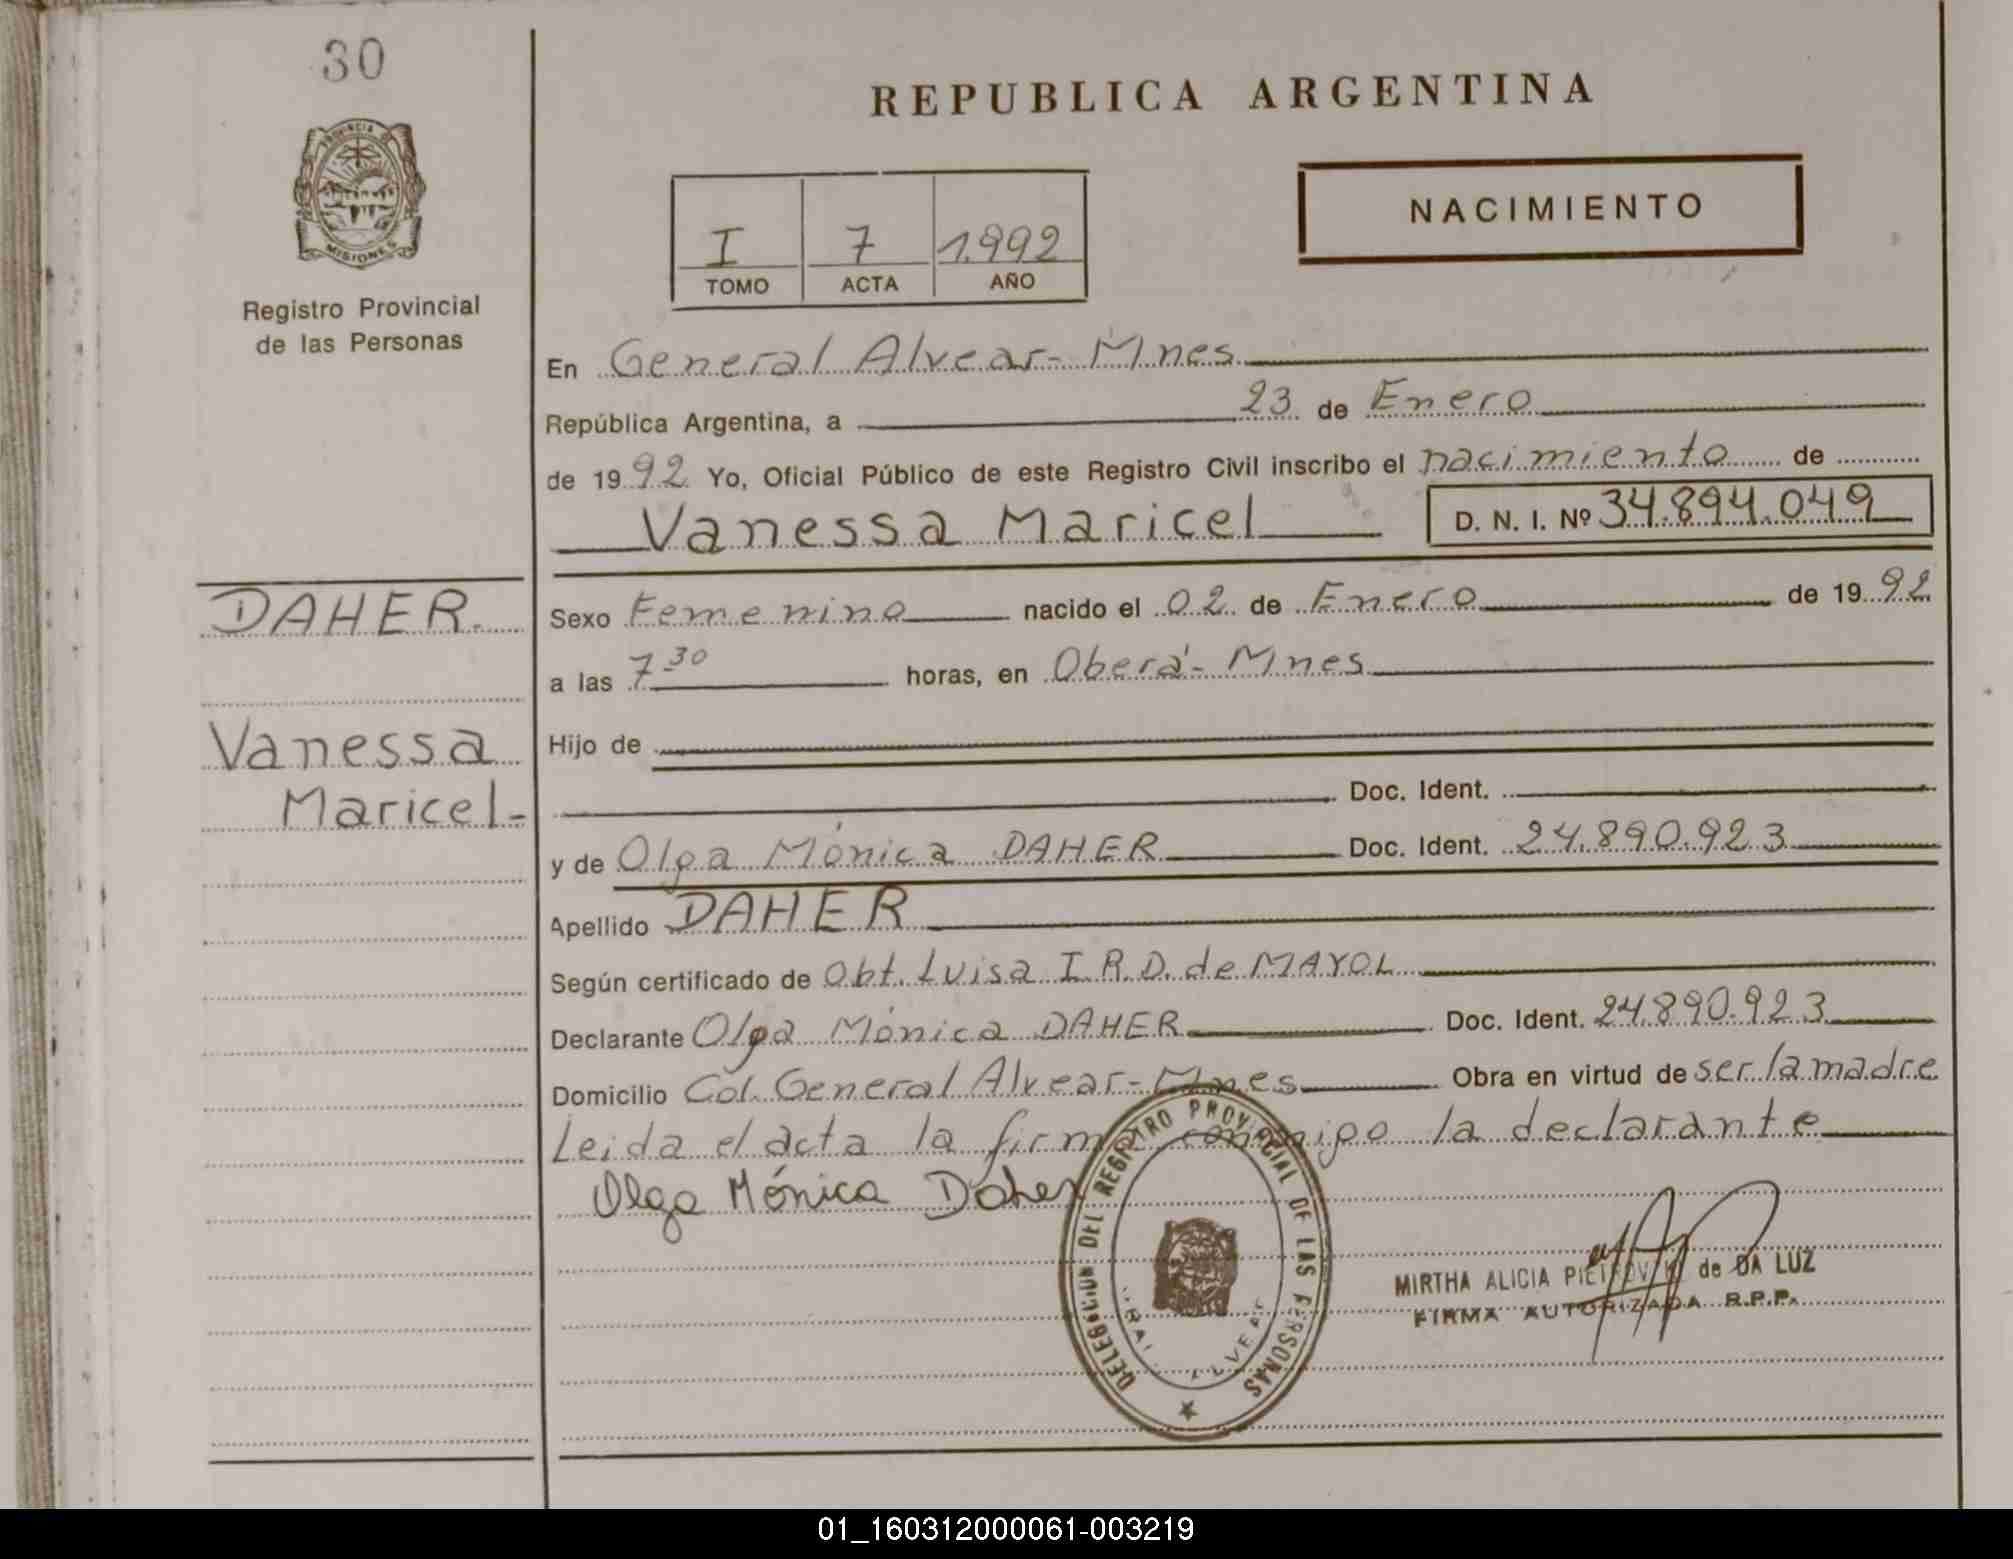 30
PROVINCIA DE
MISIONES
Registro Provincial
de las Personas
DAHER.
Vanessa
Maricel-
REPUBLICA ARGENTINA
I 7 1.992
TOMO ACTA AÑO
NACIMIENTO
En General Alvear- Mnes
República Argentina, a 23 de Enero
de 1992 Yo, Oficial Público de este Registro Civil inscribo el nacimiento de
Vanessa Maricel D. N. I. Nº 34.894.049
Sexo Femenino nacido el 02 de Enero de 1992
a las 7 30 horas, en Oberá- Mnes
Hijo de
Doc. Ident.
y de Olga Mónica DAHER Doc. Ident. 24.890.923
Apellido DAHER
Según certificado de Obt. Luisa I. R. D. de MAYOL
Declarante Olga Mónica DAHER Doc. Ident. 24.890.923
Domicilio Col. General Alvear- Mnes Obra en virtud de ser la madre
Leida el acta la firma conmigo la declarante
Olga Mónica Daher
DELEGACION DEL REGISTRO PROVINCIAL DE LAS PERSONAS
GRAL. ALVEAR
MIRTHA ALICIA de DA LUZ
FIRMA AUTORIZADA R.P.P.
01_160312000061-003219